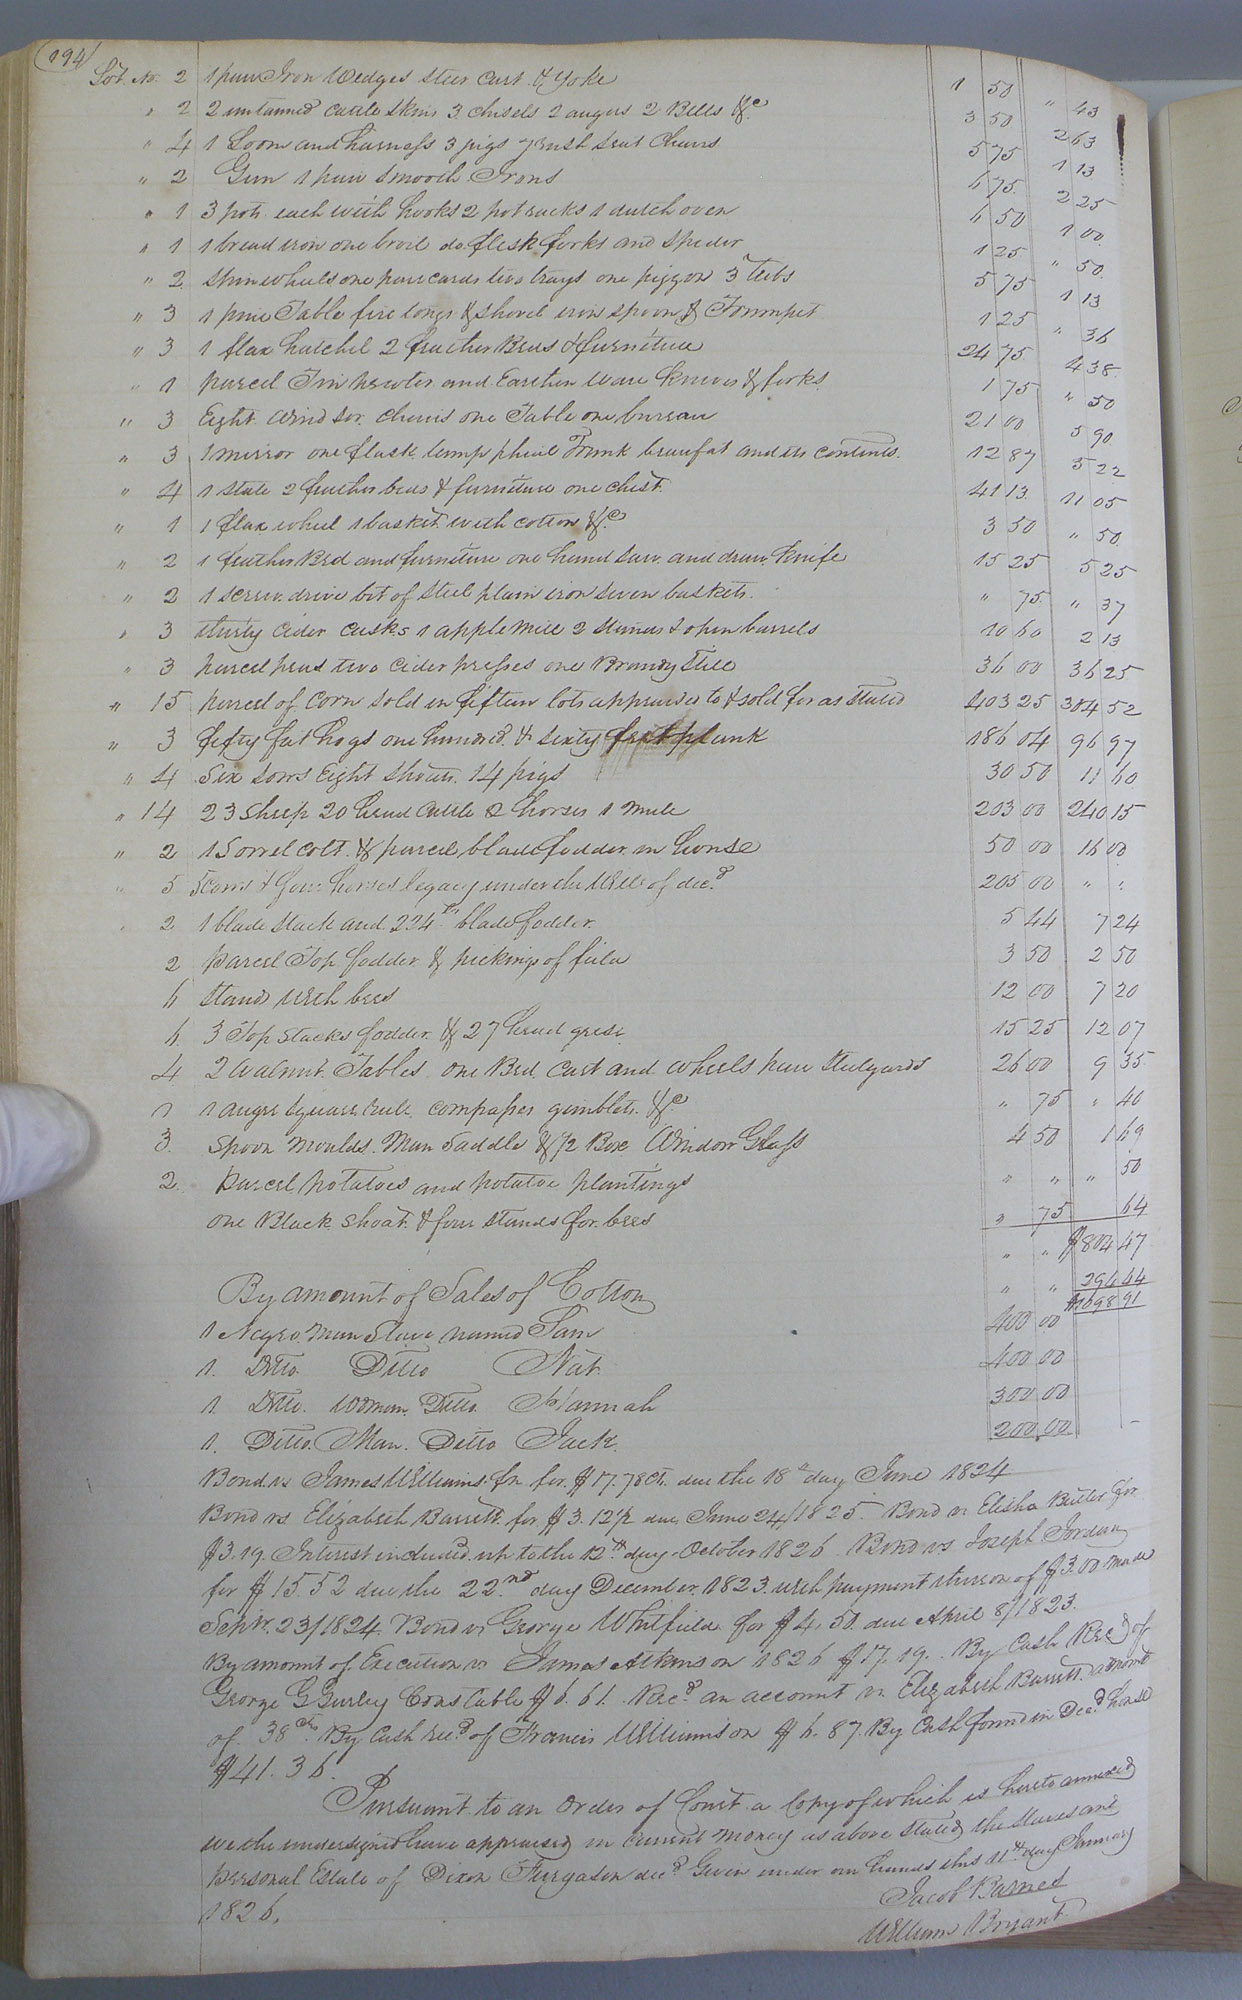 194
Lot No. 2 1 pair Iron Wedges steer cart & yoke 1 50 " 43
" 2 2 untanned cattle skins 3 chisels 2 augers 2 Bells &c 3 50 2 63
" 4 1 Loom and harness 3 pigs 7 rush seat chairs 5 75 1 13
" 2 Gun 1 pair smooth Irons 6 75 2 25
" 1 3 pots each with hooks 2 pot racks 1 dutch oven 6 50 1 00
" 1 1 bread iron one broil do. flesk forks and spider 1 25 " 50
" 2 spin wheels one pair cards two trays one piggon 3 Tubs 5 75 1 13
" 3 1 pine Table fire tongs & shovel iron spoon & Trumpet 1 25 " 36
" 3 1 flax hatchel 2 feather Beds & furniture 24 75 4 38
" 1 parcel Tin pewter and Earthen ware knives & forks 1 75 " 50
" 3 Eight Windsor chairs one Table one bureau 21 00 5 90
" 3 1 mirror one flask lamp phial Trunk beaufat and its contents. 12 87 5 22
" 4 1 slate 2 feather beds & furniture one chest. 41 13 11 05
" 1 1 flax wheel 1 basket with cotton &c 3 50 " 50
" 2 1 feather Bed and furniture one hand saw and draw knife 15 25 5 25
" 2 1 screw drive bit of steel plain iron seven baskets. " 75 " 37
" 3 thirty cider casks 1 apple Mill 2 stands & open barrels 10 60 2 13
" 3 parcel peas two cider presses one Brandy Still 36 00 36 25
" 15 parcel of corn sold in fifteen lots appraised to & sold for as stated 403 25 304 52
" 3 fifty fat hogs one hundred & sixty feet plank 186 04 96 97
" 4 Six sows Eight shoats. 14 pigs 30 50 11 60
" 14 23 sheep 20 head cattle 2 horses 1 mule 203 00 240 15
" 2 1 Sorrel colt & parcel blade fodder in house 50 00 16 00
" 5 5 cows & four horses legacy under the Will of decd 205 00 " "
" 2 1 blade stack and 224 lb blade fodder. 5 44 7 24
2 parcel Top fodder & pickings of field 3 50 2 50
6 stand with bees 12 00 7 20
6 3 Top stacks fodder. & 27 head geese 15 25 12 07
4 2 Walnut Tables one Bed cart and wheels pair steelyards 26 00 9 35
1 1 auger square rule compasses gimblets &c " 75 " 40
3. Spoon moulds Man saddle & 1/2 Box Window Glass 4 50 1 69
2 Parcel potatoes and potatoe plantings " " " 50
one Black shoat & four stands for bees " 75 64
" " $804 47
By amount of Sales of Cotton " " 294 44
$1098 91
1 Negro Man slave named Sam 400 00
1. Ditto Ditto Nat 400 00
1. Ditto. Woman Ditto. Hannah 300 00
1. Ditto. Man. Ditto Jack. 200 00
Bond vs James Williams Jr. for $17.78 cts. due the 18th day June 1824
Bond vs Elizabeth Barrett for $3.12 1/2 due June 24/1825. Bond vs Elisha Butler for
$3.19 Interest included up to the 12th day October 1826 Bond vs Joseph Jordan
for $15.52 due the 22nd day December 1823. with payment thereon of $3.00 made
Septr. 23/1824 Bond vs George Whitfield for $4.50 due April 8/1823.
By amount of Execution vs James Atkinson 1826 $17.19. By Cash Recd of
George G Gurley Constable $6.61. Recd an account vs. Elizabeth Barrett amount
of 38 cts By Cash recd of Francis Williamson $6.87 By Cash found in Decd house
$41.36.
Pursuant to an order of Court a Copy of which is hereto annexed
we the undersigned have appraised in current money as above stated the slaves and
personal Estate of Dixon Furgason decd Given under our hands this 11th day January
1826.
Jacob Barnes
William Bryant